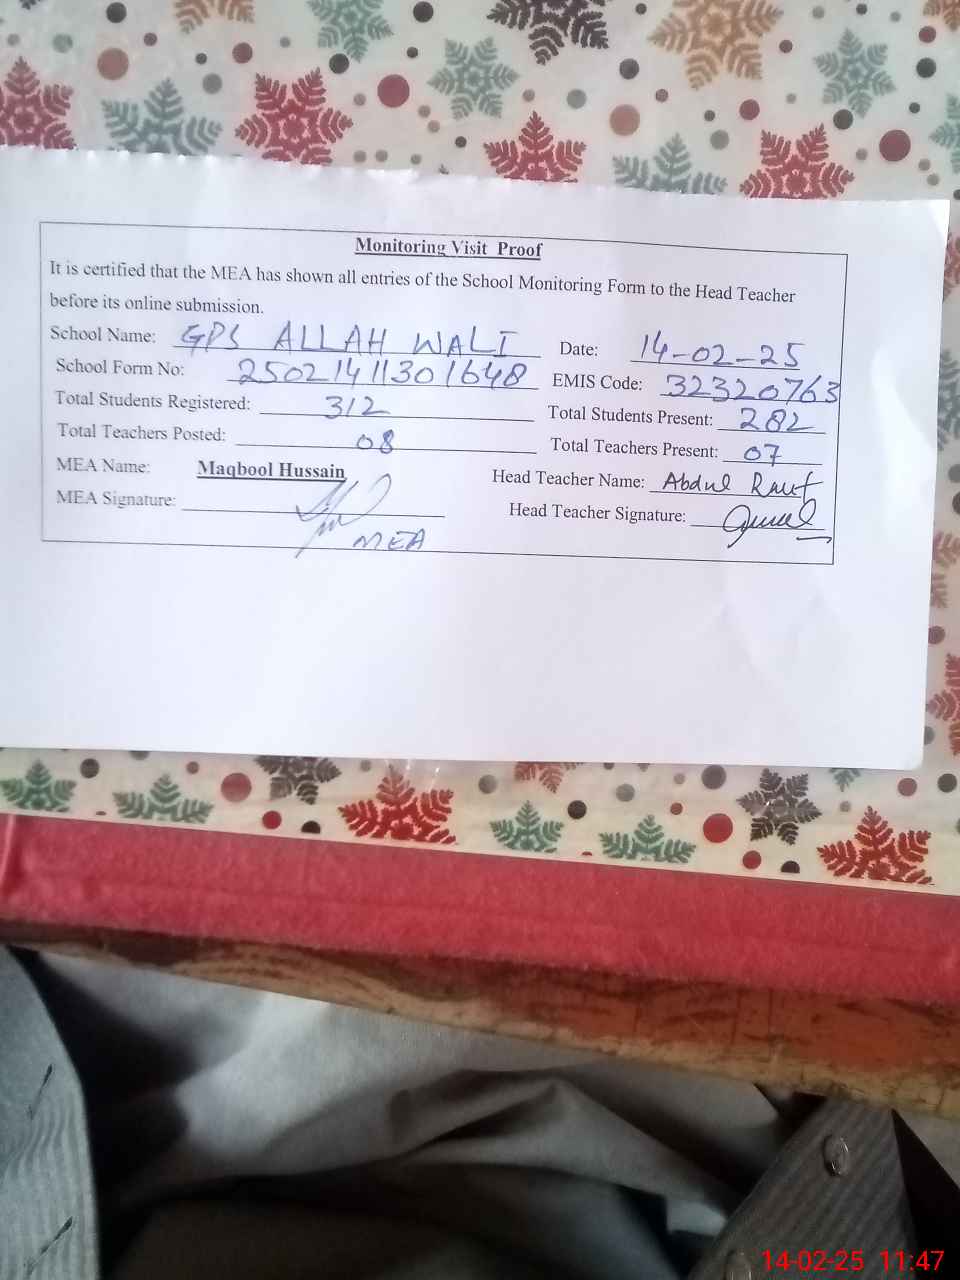 Monitoring Visit Proof
It is certified that the MEA has shown all entries of the School Monitoring Form to the Head Teacher
before its online submission.
School Name: GPS ALLAH WALI Date: 14-02-25
School Form No: 25021411301648 EMIS Code: 32320763
Total Students Registered: 312 Total Students Present: 282
Total Teachers Posted: 08 Total Teachers Present: 07
MEA Name: Maqbool Hussain Head Teacher Name: Abdul Rauf
MEA Signature: Head Teacher Signature:
MEA
14-02-25 11:47